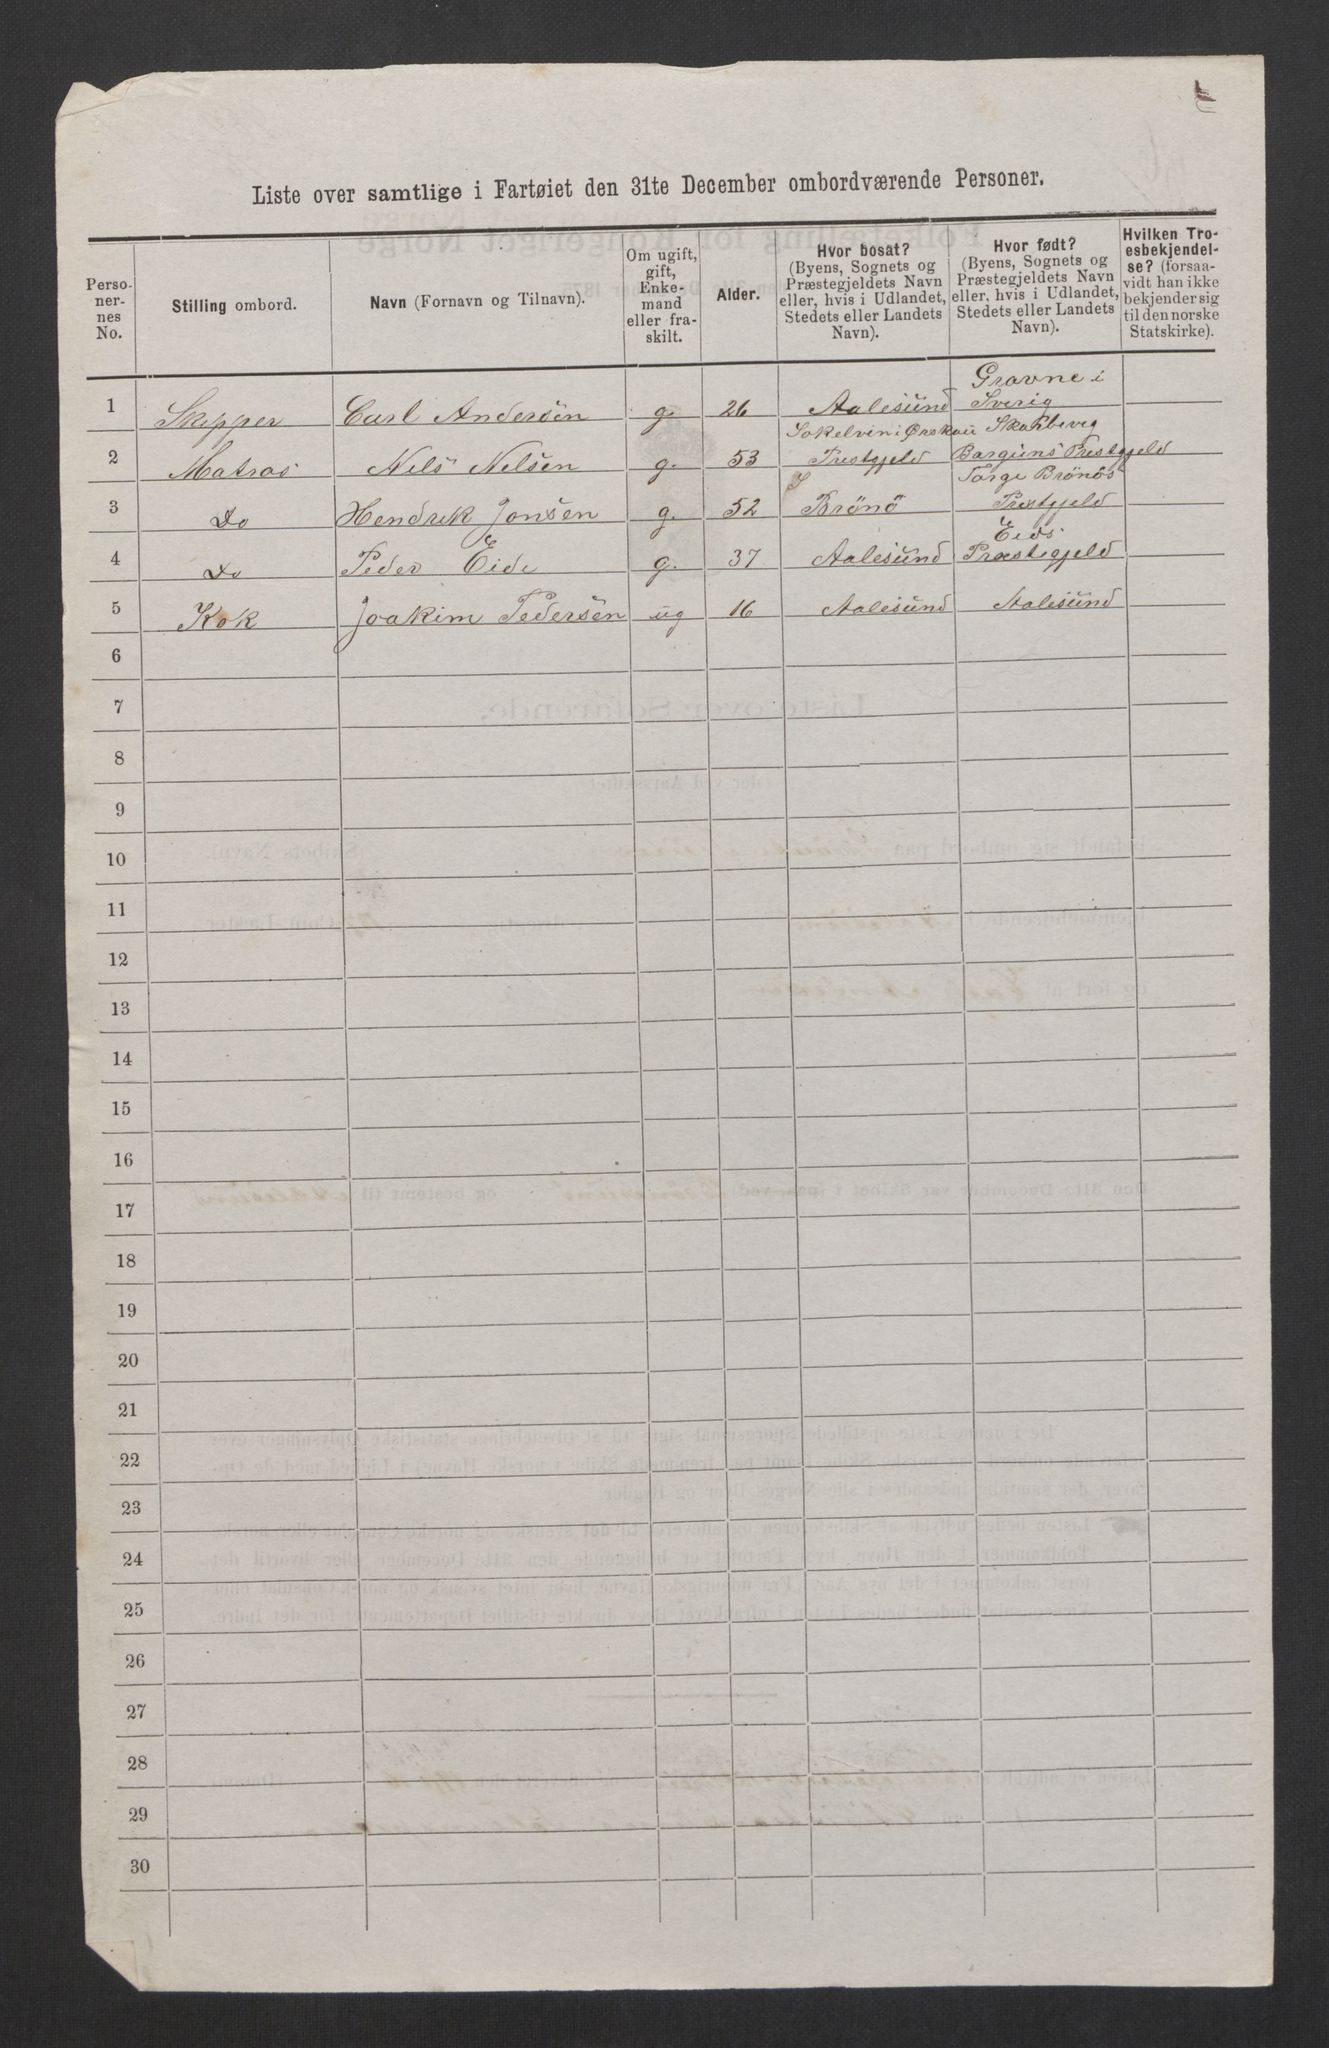 Liste over samtlige i Fartøiet den 31te December ombordværende Personer.
Perso-
ner-
nes
No.
Stilling ombord.
Navn (Fornavn og Tilnavn).
Om ugift,
gift,
Enke-
mand
eller fra-
skilt.
Alder.
Hvor bosat?
(Byens, Sognets og
Præstegjeldets Navn
eller, hvis i Udlandet,
Stedets eller Landets
Navn).
Hvor født?
(Byens, Sognets og
Præstegjeldets Navn
eller, hvis i Udlandet,
Stedets eller Landets
Navn).
Hvilken Tro-
esbekjendel-
se? (forsaa-
vidt han ikke
bekjender sig
til den norske
Statskirke).
Gravne i
1 Skipper Carl Andersen g. 26 Aalesund Sverig
Sokelven i Ørskau
2 Matros Nels Nelsen g. 53 Prestgjeld Borgunds Prestgjeld
I Torge Brönös
3 Do Hendrek Jonsen g. 52 Brönö Prestgjeld
Eids
4 Do Peder Eide g. 37 Aalesund Præstegjeld
5 Kok Joakim Pedersen ug 16 Aalesund Aalesund
6
7
8
9
10
11
12
13
14
15
16
17
18
19
20
21
22
23
24
25
26
27
28
29
30